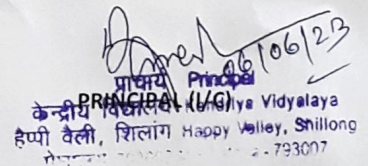 06/06/23
प्राचार्य Principal
PRINCIPAL (I/C)
केन्द्रीय विद्यालय Kendriya Vidyalaya
हैप्पी वैली, शिलांग Happy Valley, Shillong
793007